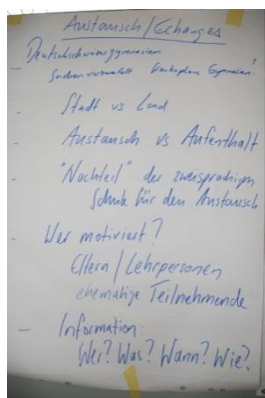 Austausch/Echanges
Deutschschweizergymnasien
- Stadt vs Land
- Austausch vs Aufenthalt
- "Nachteil" der zweisprachigen
Schule für den Austausch
- Wer motiviert?
Eltern/Lehrpersonen
ehemalige Teilnehmende
- Information:
Wer? Was? Wann? Wie?